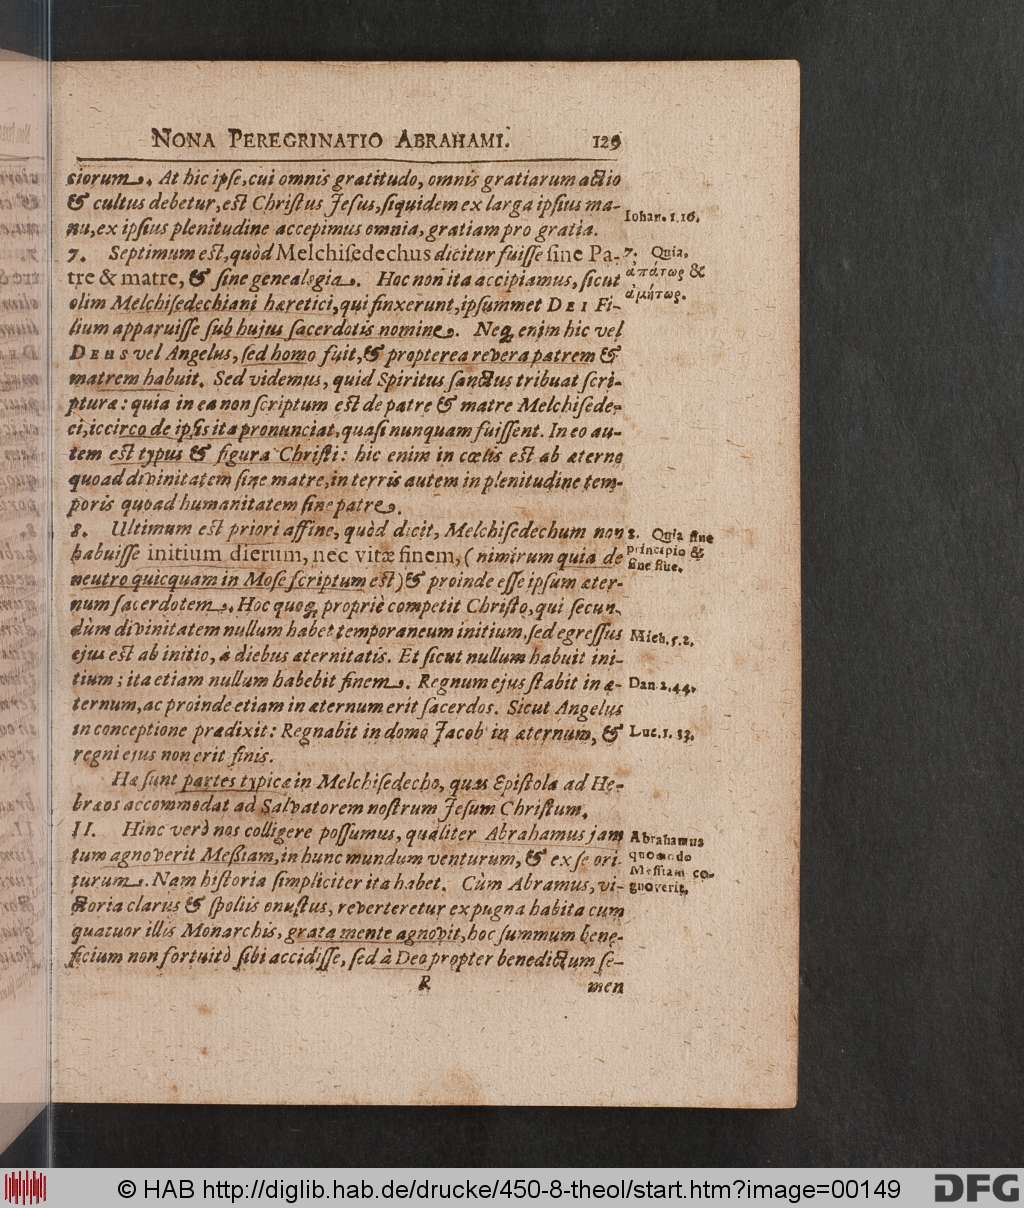 NONA PEREGRINATIO ABRAHAMI. 129
ciorum. At hic ipse, cui omnis gratitudo, omnis gratiarum actio
& cultus debetur, est Christus Jesus, siquidem ex larga ipsius ma-
nu, ex ipsius plenitudine accepimus omnia, gratiam pro gratia.
Iohan. 1.16.
7. Septimum est, quòd Melchisedechus dicitur fuisse sine Pa-
tre & matre, & sine genealogia. Hoc non ita accipiamus, sicut
olim Melchisedechiani hæretici, qui finxerunt, ipsummet DEI Fi-
lium apparuisse sub hujus sacerdotis nomine. Neq; enim hic vel
DEUS vel Angelus, sed homo fuit, & propterea revera patrem &
matrem habuit. Sed videmus, quid Spiritus sanctus tribuat scri-
pturæ: quia in ea non scriptum est de patre & matre Melchisede-
ci, iccirco de ipsis ita pronunciat, quasi nunquam fuissent. In eo au-
tem est typus & figura Christi: hic enim in cœlis est ab æterno
quoad divinitatem sine matre, in terris autem in plenitudine tem-
poris quoad humanitatem sine patre.
7. Quia,
ἀπάτωρ &
ἀμήτωρ.
8. Ultimum est priori affine, quòd dicit, Melchisedechum non
habuisse initium dierum, nec vitæ finem, (nimirum quia de
neutro quicquam in Mose scriptum est) & proinde esse ipsum æter-
num sacerdotem. Hoc quoq; propriè competit Christo, qui secun-
dùm divinitatem nullum habet temporaneum initium, sed egressus
ejus est ab initio, à diebus æternitatis. Et sicut nullum habuit ini-
tium; ita etiam nullum habebit finem. Regnum ejus stabit in æ-
ternum, ac proinde etiam in æternum erit sacerdos. Sicut Angelus
in conceptione prædixit: Regnabit in domo Jacob in æternum, &
regni ejus non erit finis.
8. Quia sine
principio &
fine
Mich. 5.2.
Dan. 2.44.
Luc. 1. 33.
Hæ sunt partes typicæ in Melchisedecho, quas Epistola ad He-
bræos accommodat ad Salvatorem nostrum Jesum Christum.
II. Hinc verò nos colligere possumus, qualiter Abrahamus jam
tum agnoverit Messiam, in hunc mundum venturum, & ex se ori-
turum. Nam historia simpliciter ita habet. Cùm Abramus, vi-
ctoria clarus & spoliis onustus, reverteretur ex pugna habita cum
quatuor illis Monarchis, grata mente agnovit, hoc summum bene-
ficium non fortuitò sibi accidisse, sed à Deo propter benedictum se-
Abrahamus
quomodo
Messiam co-
gnoverit.
R men
© HAB http://diglib.hab.de/drucke/450-8-theol/start.htm?image=00149
DFG